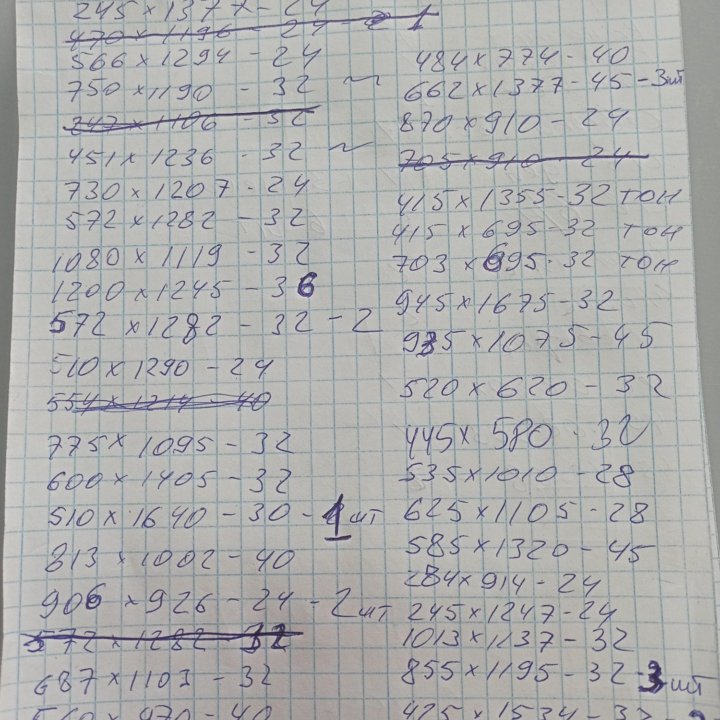 245 x 1377 - 24
470 x 1196 - 24 - 1
566 x 1294 - 24
750 x 1190 - 32 ~
247 x 1106 - 32
451 x 1236 - 32 ~
730 x 1207 - 24
572 x 1282 - 32
1080 x 1119 - 32
1200 x 1245 - 36
572 x 1282 - 32 - 2
510 x 1290 - 24
554 x 1214 - 40
775 x 1095 - 32
600 x 1405 - 32
510 x 1640 - 30 - 1 шт
813 x 1002 - 40
906 x 926 - 24 - 2 шт
572 x 1282 32
687 x 1103 - 32
560 x 970 - 40
484 x 774 - 40
662 x 1377 - 45 - 3 шт
870 x 910 - 24
705 x 910 24
415 x 1355 - 32 тон
415 x 695 - 32 тон
703 x 695 - 32 тон
945 x 1675 - 32
935 x 1075 - 45
520 x 620 - 32
445 x 580 - 32
535 x 1010 - 28
625 x 1105 - 28
585 x 1320 - 45
284 x 914 - 24
245 x 1247 - 24
1013 x 1137 - 32
855 x 1195 - 32 - 3 шт
425 x 1534 - 32